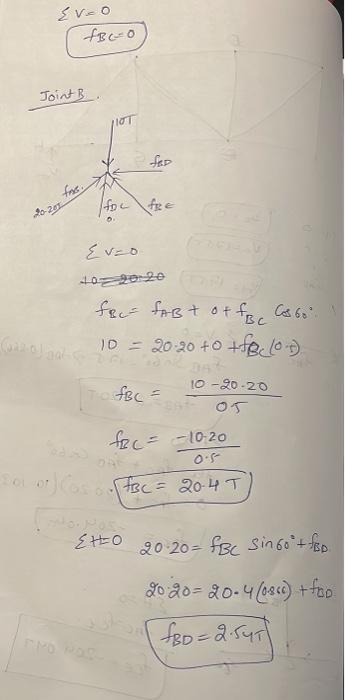 ΣV=0
fBC=0
Joint B.
10T
fBD
fAB.
20.20T
fBC
0.
fBE
ΣV=0
10=20.20
fBC= fAB + 0+ fBC Cos60°.
10 = 20.20+0+fBC(0.5)
fBC = 10-20.20
0.5
fBC = -10.20
0.5
fBC = 20.4 T
ΣH=0 20.20= fBC Sin60°+fBD
20.20= 20.4(0.866) + fBD
fBD = 2.54T